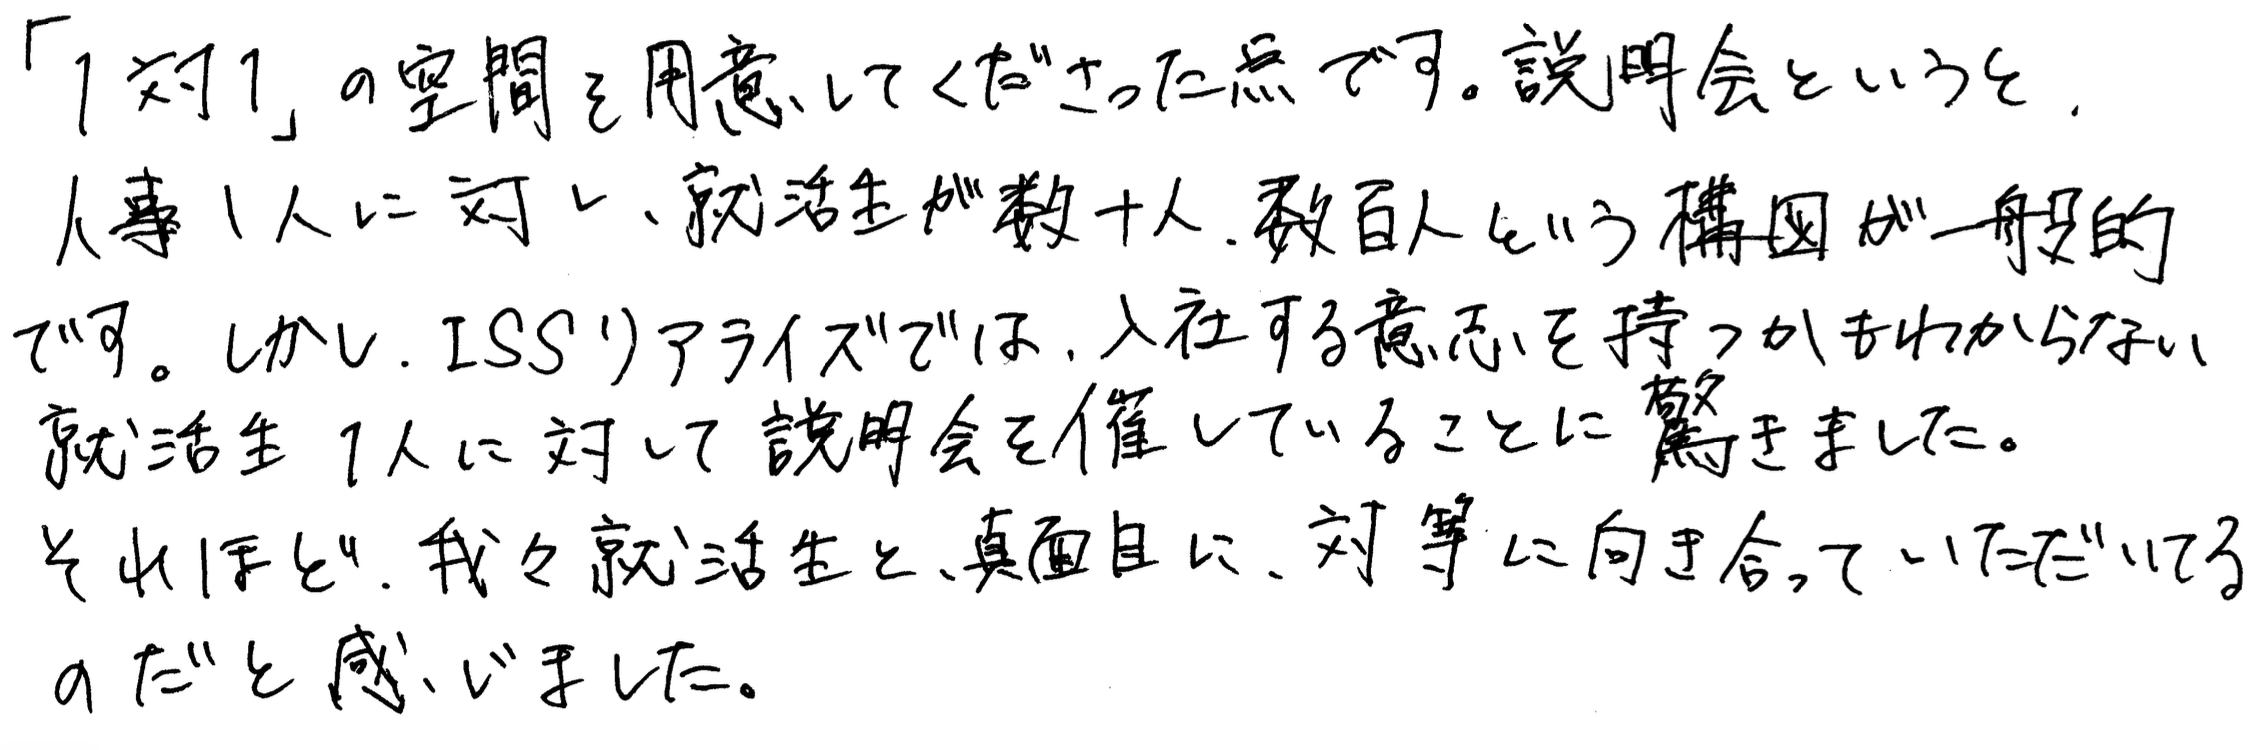 「1対1」の空間を用意してくださった点です。説明会というと、
人事1人に対し、就活生が数十人、数百人という構図が一般的
です。しかし、ISSリアライズでは、入社する意志を持つかもわからない
就活生1人に対して説明会を催していることに驚きました。
それほど、我々就活生と、真面目に、対等に向き合っていただいてる
のだと感じました。